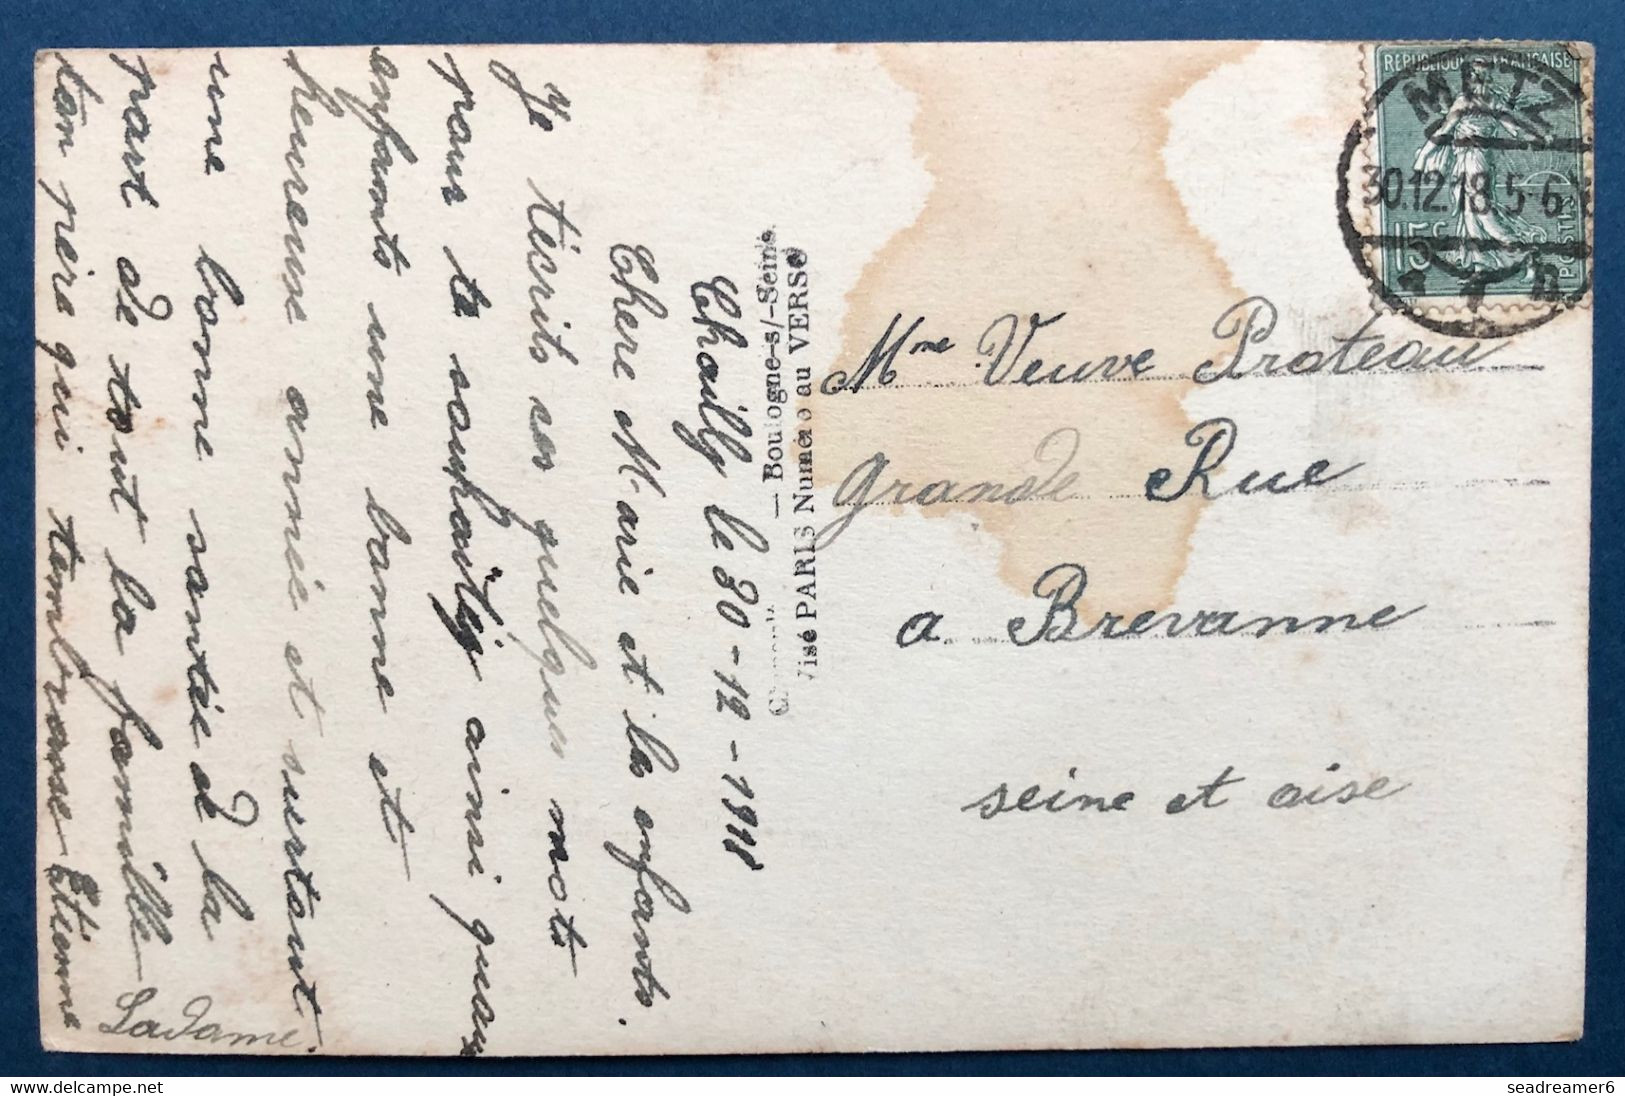 Chailly le 30-12-1918
Chere Marie et les enfants.
Je técrits ses quelques mots
pour te souhaitig ainsi quaux
enfants une bonne et
heureuse année et surtout
une bonne santée de la
part de tout la famille
ton père qui tembrasse Etienne
Ladame.
— Boulogne-s/-Seine.
Visé PARIS Numéro au VERSO
REPUBLIQUE FRANÇAISE
15c
POSTES
METZ
30.12.18.5-6
1
Mme Veuve Proteau
grande Rue
a Brevanne
seine et oise
seadreamer6